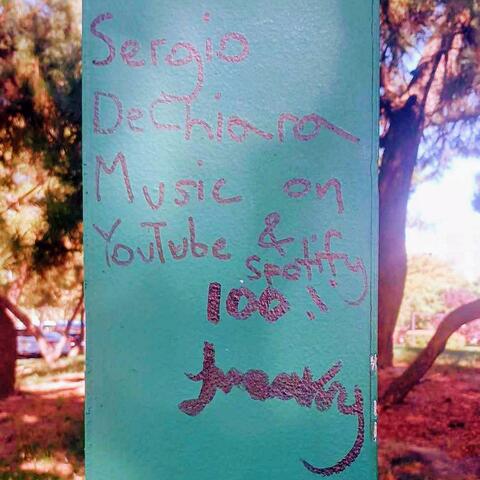 Sergio
DeChiara
Music on
YouTube &
Spotify
100!!